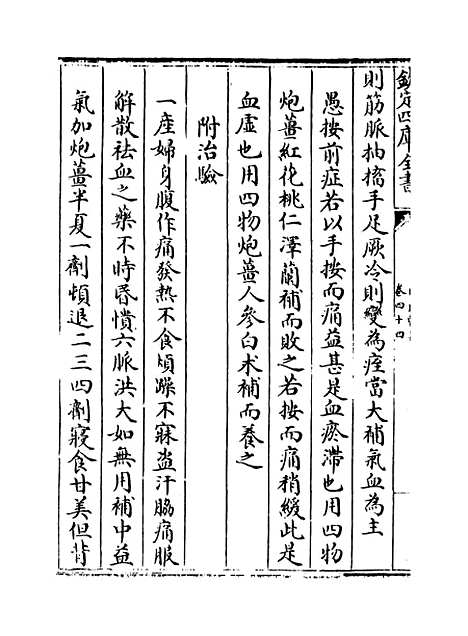 欽定四庫全書
卷四十四
則筋脈抽搐手足厥冷則變為痓當大補氣血為主
愚按前症若以手按而痛益甚是血瘀滯也用四物
炮薑紅花桃仁澤蘭補而敗之若按而痛稍緩此是
血虛也用四物炮薑人參白术補而養之
附治驗
一產婦身腹作痛發熱不食煩躁不寐盗汗脇痛服
解散祛血之藥不時昏憒六脈洪大如無用補中益
氣加炮薑半夏一劑頓退二三四劑寢食甘美但背